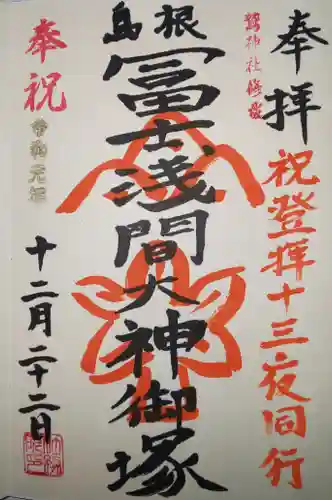 奉拝
鷲神社修験
祝登拝十三夜同行
島根
冨士浅間大神御塚
奉祝
令和元年
十二月二十二日